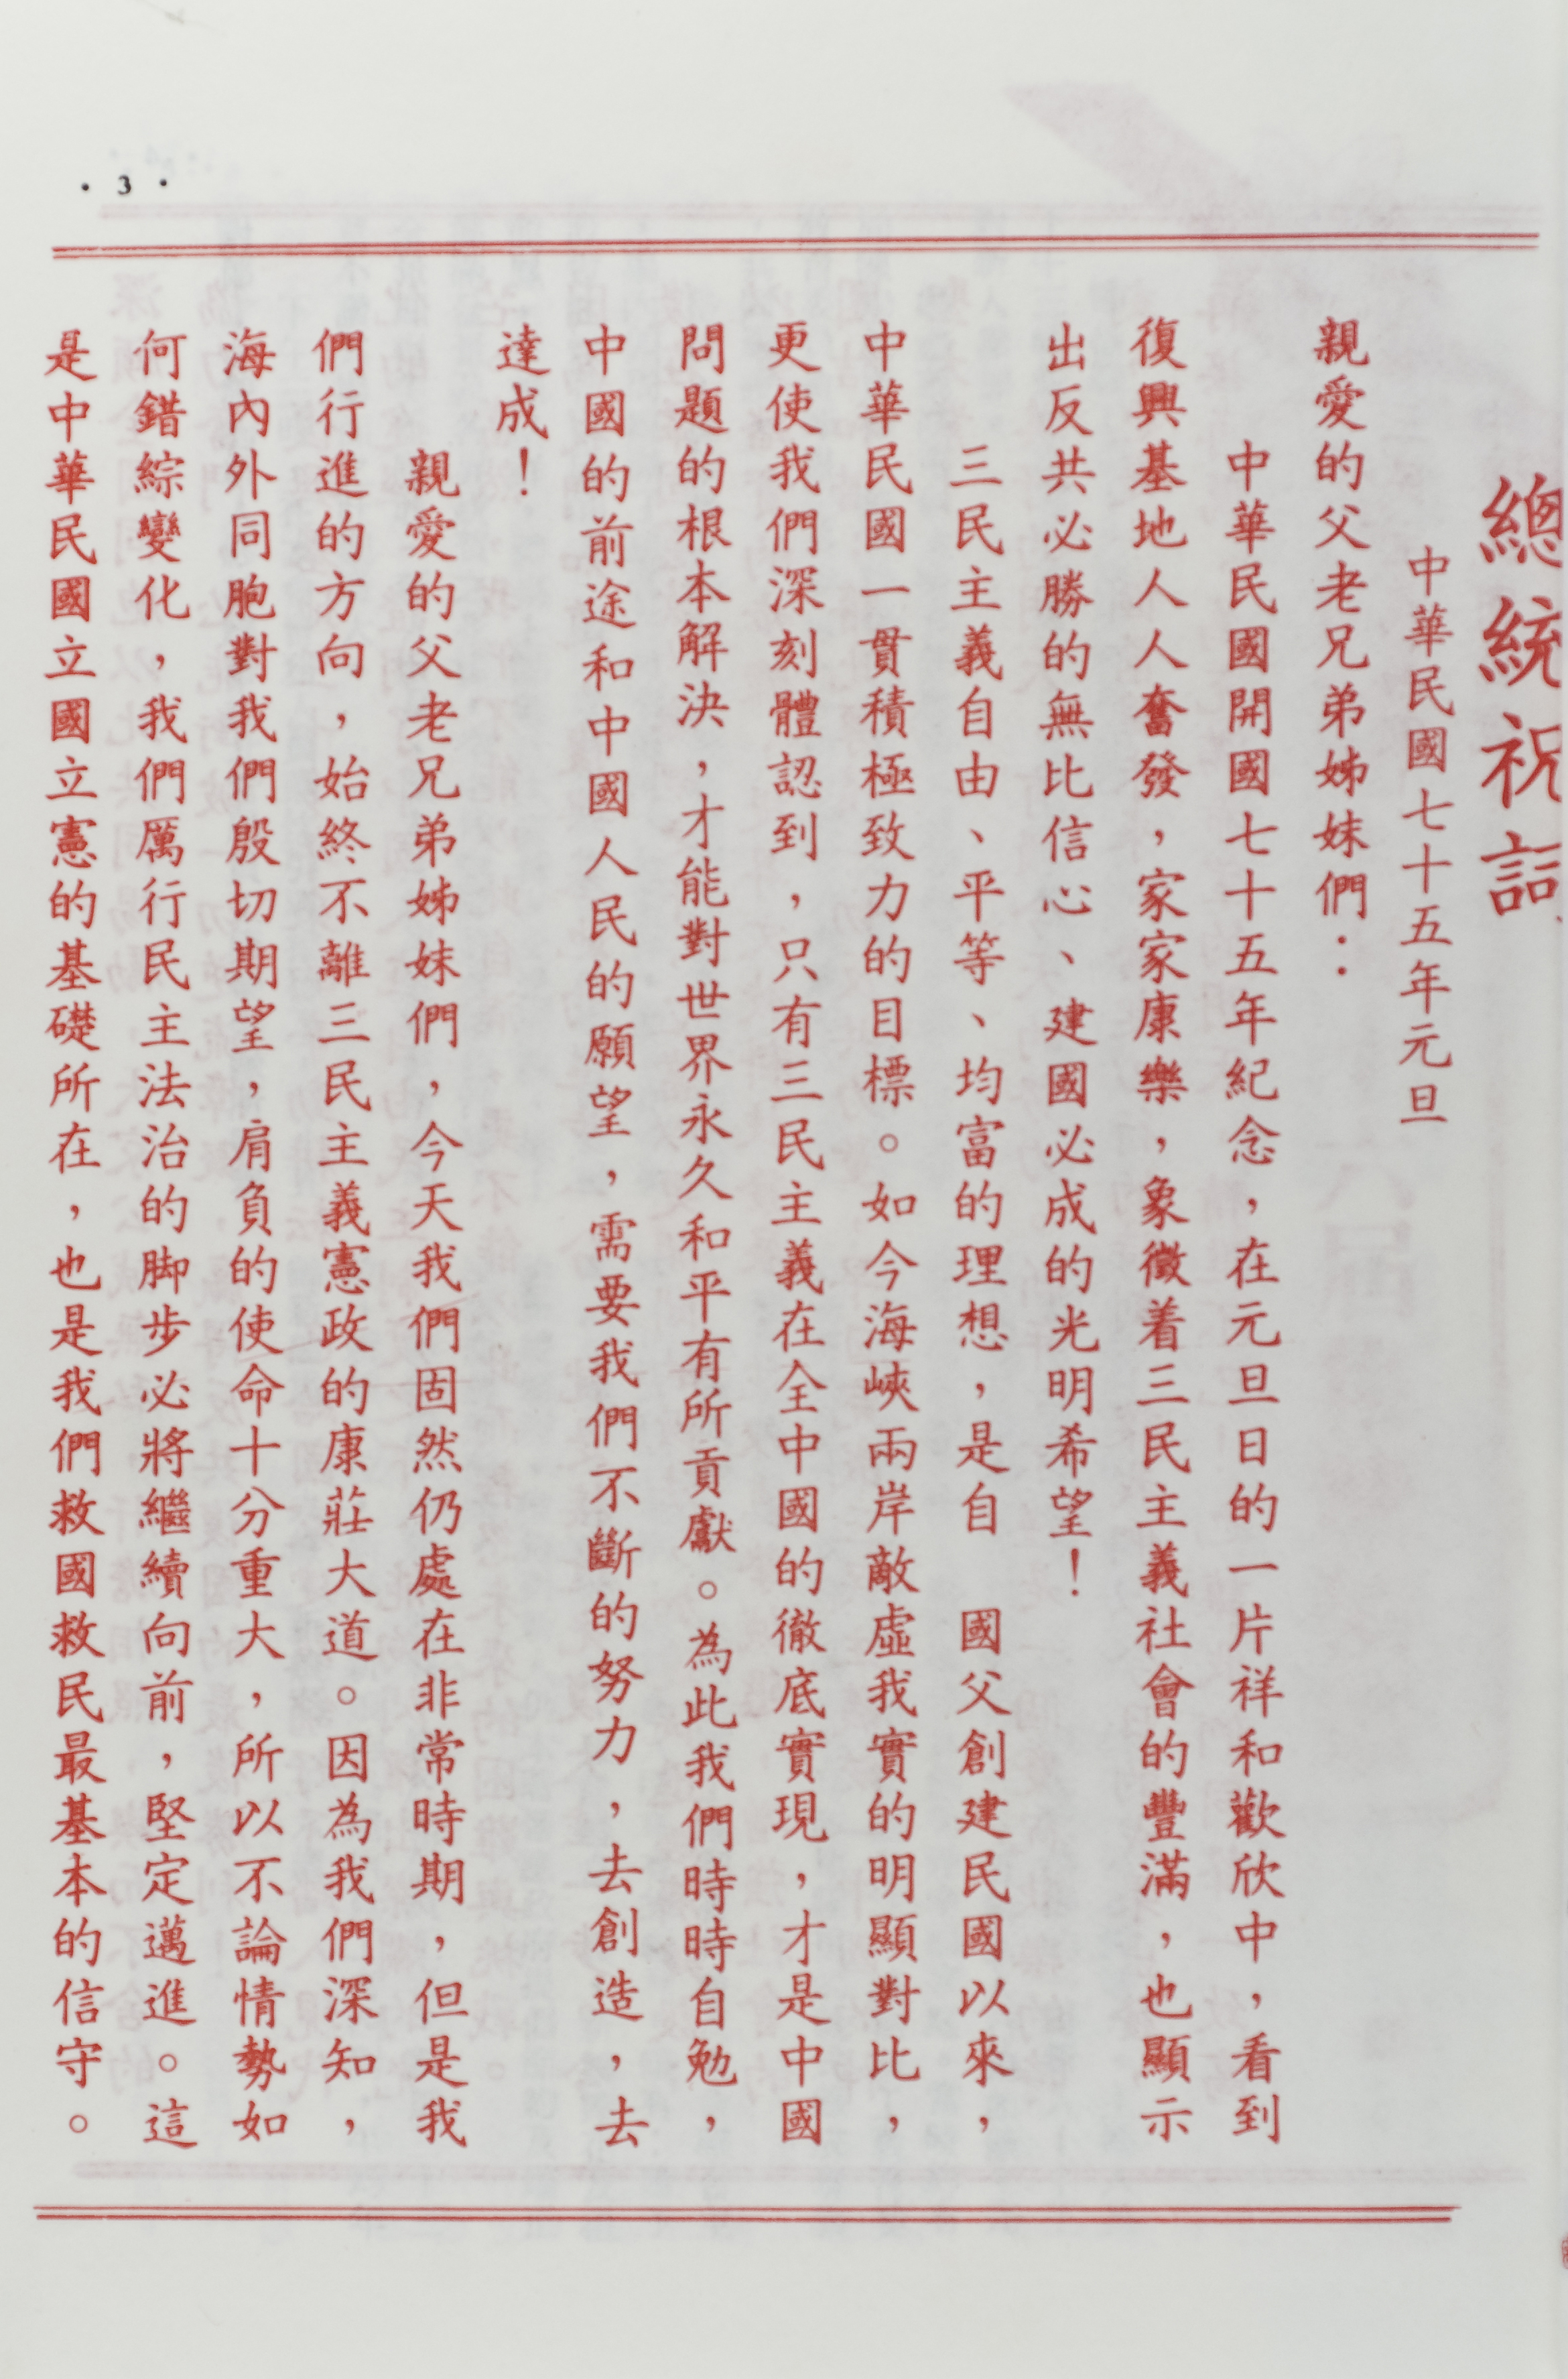 · 3 ·
總統祝詞
中華民國七十五年元旦
親愛的父老兄弟姊妹們：
中華民國開國七十五年紀念，在元旦日的一片祥和歡欣中，看到
復興基地人人奮發，家家康樂，象徵着三民主義社會的豐滿，也顯示
出反共必勝的無比信心、建國必成的光明希望！
三民主義自由、平等、均富的理想，是自　國父創建民國以來，
中華民國一貫積極致力的目標。如今海峽兩岸敵虛我實的明顯對比，
更使我們深刻體認到，只有三民主義在全中國的徹底實現，才是中國
問題的根本解決，才能對世界永久和平有所貢獻。為此我們時時自勉，
中國的前途和中國人民的願望，需要我們不斷的努力，去創造，去
達成！
親愛的父老兄弟姊妹們，今天我們固然仍處在非常時期，但是我
們行進的方向，始終不離三民主義憲政的康莊大道。因為我們深知，
海內外同胞對我們殷切期望，肩負的使命十分重大，所以不論情勢如
何錯綜變化，我們厲行民主法治的脚步必將繼續向前，堅定邁進。這
是中華民國立國立憲的基礎所在，也是我們救國救民最基本的信守。